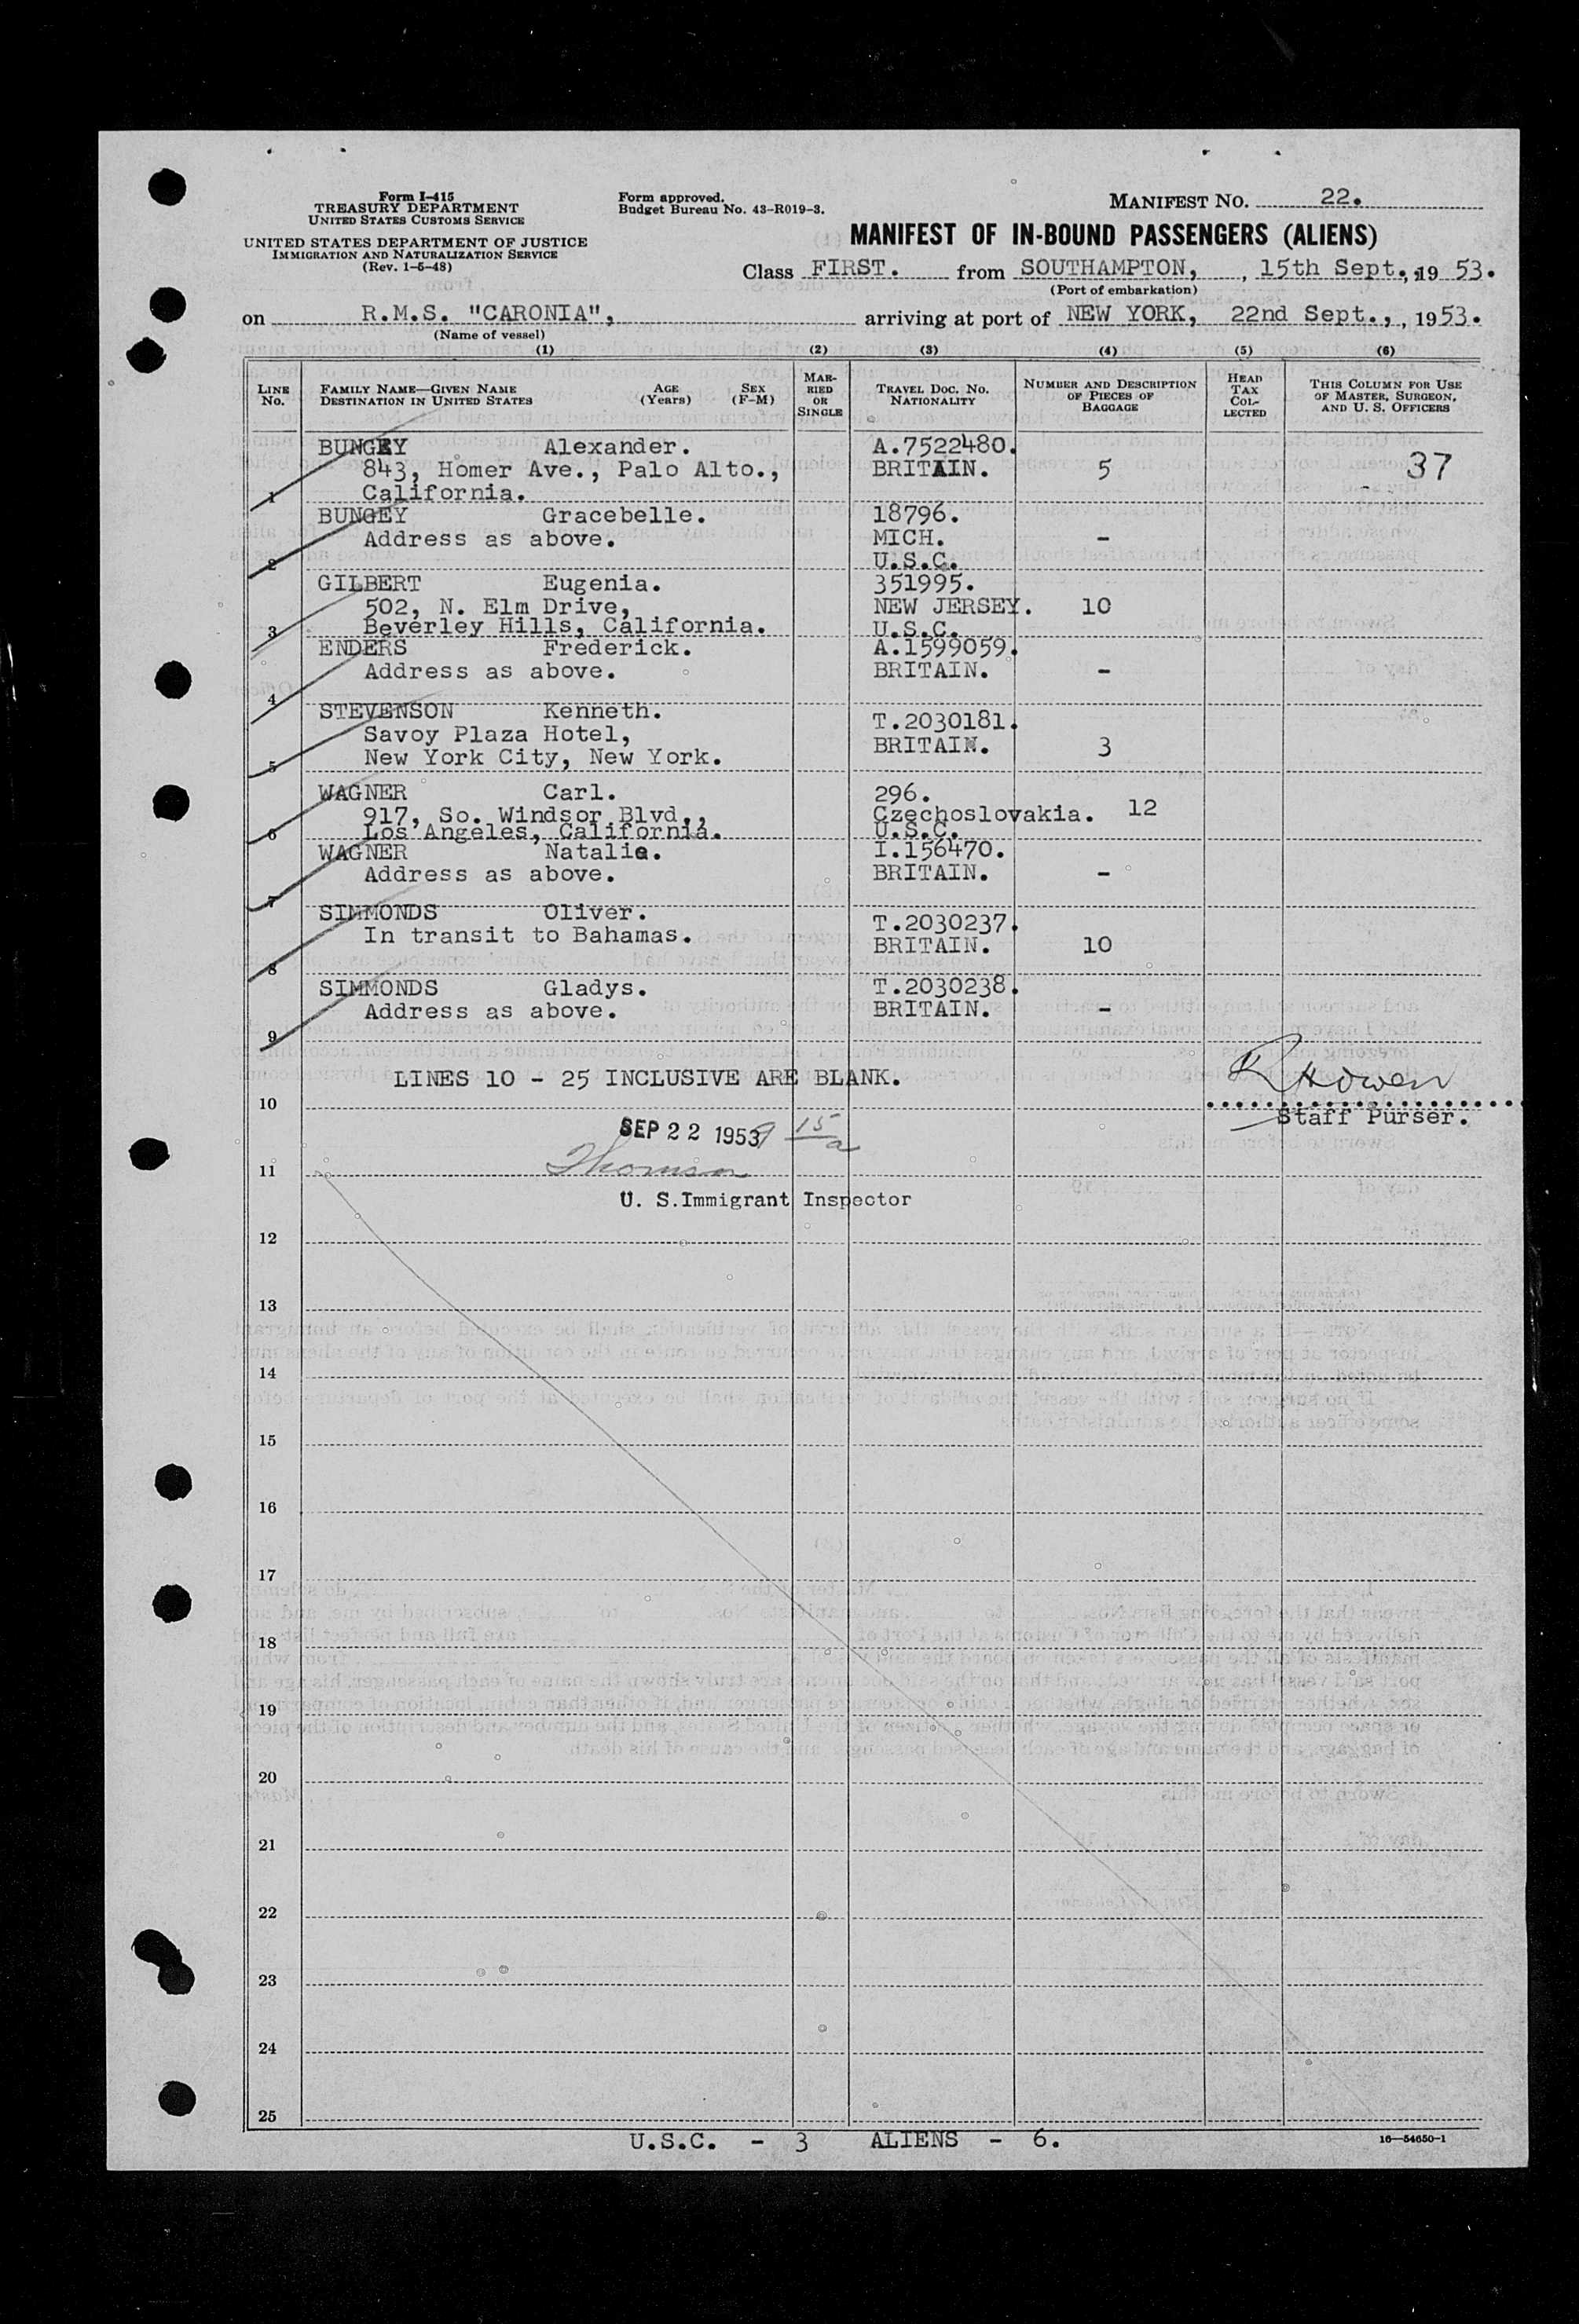 Form I-415
TREASURY DEPARTMENT
UNITED STATES CUSTOMS SERVICE
UNITED STATES DEPARTMENT OF JUSTICE
IMMIGRATION AND NATURALIZATION SERVICE
(Rev. 1-5-48)
Form approved.
Budget Bureau No. 43-R019-3.
MANIFEST NO. 22.
MANIFEST OF IN-BOUND PASSENGERS (ALIENS)
Class FIRST. from SOUTHAMPTON, , 15th Sept., 19 53.
(Port of embarkation)
on R.M.S. "CARONIA", arriving at port of NEW YORK, 22nd Sept., , 1953.
(Name of vessel)
(1) (2) (3) (4) (5) (6)
LINE NO.
FAMILY NAME—GIVEN NAME
DESTINATION IN UNITED STATES
AGE (Years)
SEX (F-M)
MARRIED OR SINGLE
TRAVEL DOC. NO.
NATIONALITY
NUMBER AND DESCRIPTION
OF PIECES OF
BAGGAGE
HEAD
TAX
COL-
LECTED
THIS COLUMN FOR USE
OF MASTER, SURGEON,
AND U. S. OFFICERS
BUNGEY Alexander. A.7522480.
843, Homer Ave., Palo Alto., BRITAIN. 5 37
1 California.
BUNGEY Gracebelle. 18796.
Address as above. MICH. -
2 U.S.C.
GILBERT Eugenia. 351995.
502, N. Elm Drive, NEW JERSEY. 10
3 Beverley Hills, California. U.S.C.
ENDERS Frederick. A.1599059.
Address as above. BRITAIN. -
4
STEVENSON Kenneth. T.2030181.
Savoy Plaza Hotel, BRITAIN. 3
5 New York City, New York.
WAGNER Carl. 296.
917, So. Windsor Blvd., Czechoslovakia. 12
6 Los Angeles, California. U.S.C.
WAGNER Natalie. I.156470.
Address as above. BRITAIN. -
7
SIMMONDS Oliver. T.2030237.
In transit to Bahamas. BRITAIN. 10
8
SIMMONDS Gladys. T.2030238.
Address as above. BRITAIN. -
9
LINES 10 - 25 INCLUSIVE ARE BLANK.
10
Staff Purser.
SEP 22 1953
11
U. S.Immigrant Inspector
12
13
14
15
16
17
18
19
20
21
22
23
24
25
U.S.C. - 3 ALIENS - 6.
16—54650-1